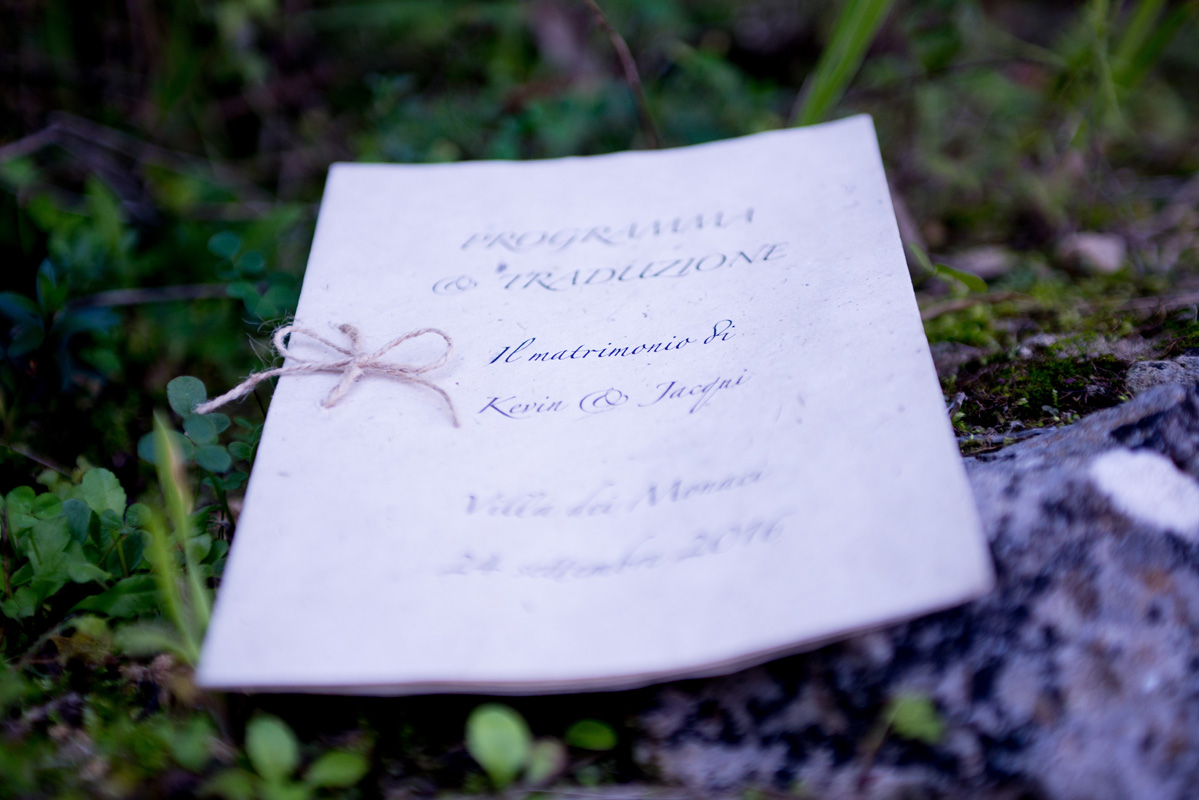 PROGRAMMA
& TRADUZIONE
Il matrimonio di
Kevin & Jacqui
Villa dei Monaci
24 settembre 2016